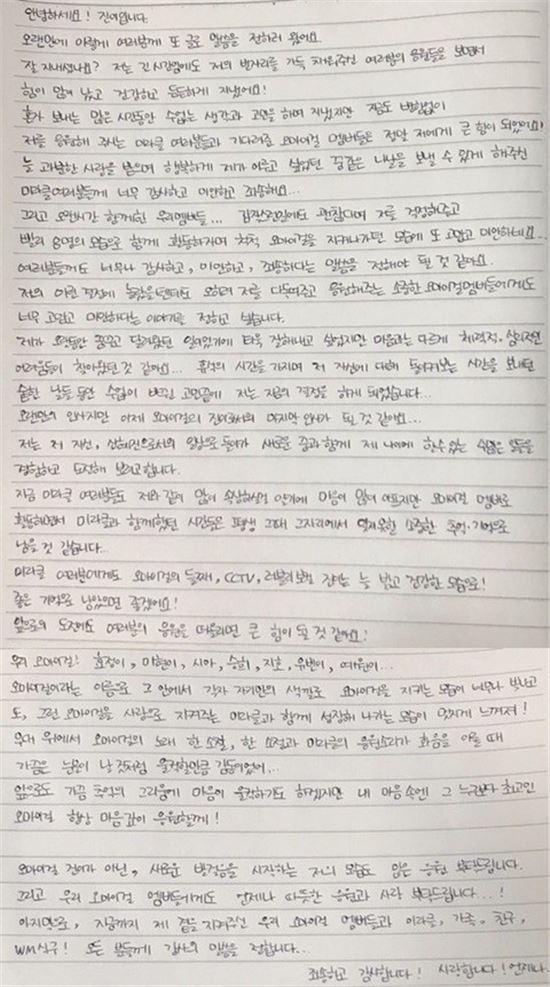 안녕하세요! 진이입니다.
오랜만에 이렇게 여러분께 또 글로 말씀을 전하러 왔어요.
잘 지내셨나요? 저는 긴 시간임에도 저의 빈자리를 가득 채워주신 여러분의 응원들을 보면서
힘이 많이 났고 건강하고 든든하게 지냈어요!
혼자 보내는 많은 시간동안 수없는 생각과 고민을 하며 지냈지만 지금도 변함없이
저를 응원해 주시는 미라클 여러분들과 기다려준 오마이걸 멤버들은 정말 저에게 큰 힘이 되었어요!
늘 과분한 사랑을 받으며 행복하게 제가 이루고 싶었던 꿈같은 나날을 보낼 수 있게 해주신
미라클여러분들께 너무 감사하고 미안하고 죄송해요...
그리고 오랜시간 함께한 우리멤버들... 갑작스런일에도 괜찮다며 저를 걱정해주고
빨리 8명의 모습으로 함께 활동하자며 척척 오마이걸을 지켜나가던 모습에 또 고맙고 미안하네요...
여러분들께도 너무나 감사하고, 미안하고, 죄송하다는 말씀을 전해야 될 것 같아요.
저의 이런 결정에 놀랐을텐데도 오히려 저를 다독여주고 응원해주는 소중한 오마이걸멤버들에게도
너무 고맙고 미안하다는 이야기를 전하고 싶습니다.
제가 오랫동안 꿈꾸고 달려왔던 일이었기에 더욱 잘해내고 싶었지만 마음과는 다르게 체력적·심리적인
어려움들이 찾아왔던 것 같아요... 휴식의 시간을 가지며 저 자신에 대해 돌아켜보는 시간을 보내던
숱한 날들 동안 수없이 반복된 고민끝에 저는 지금의 결정을 하게 되었습니다...
오랜만의 인사지만 이제 오마이걸의 진이로써의 마지막 인사가 될 것 같아요...
저는 저 자신, 신혜진으로서의 일상으로 돌아가 새로운 꿈과 함께 제 나이에 할 수 있는 싶은 일들을
경험하고 도전해 보려고합니다.
지금 미라클 여러분들도 저와 같이 많이 속상하실걸 알기에 마음이 많이 아프지만 오마이걸 멤버로
활동하면서 미라클과 함께했던 시간들은 평생 그대 그자리에서 잊지못할 소중한 추억·기억으로
남을 것 같습니다...
미라클 여러분에게도 오마이걸의 둘째, CCTV, 러블리보컬 진이는 늘 밝고 건강한 모습으로!
좋은 기억으로 남았으면 좋겠어요!
앞으로의 도전에도 여러분의 응원을 떠올리면 큰 힘이 될 것 같아요!
우리 오마이걸! 효정이, 미현이, 시아, 승희, 지호, 유빈이, 예원이...
오마이걸이라는 이름으로 그 안에서 각자 자기만의 색깔로 오마이걸을 지키는 모습이 너무나 빛나고
또, 그런 오마이걸을 사랑으로 지켜주는 미라클과 함께 성장해 나가는 모습이 멋지게 느껴져!
무대 위에서 오마이걸의 노래 한 소절, 한 소절과 미라클의 응원소리가 화음을 이룰 때
가끔은 눈물이 날 것처럼 울컥할만큼 감동이었어...
앞으로도 가끔 추억의 그리움에 마음이 울컥하기도 하겠지만 내 마음속엔 그 누구보다 최고인
오마이걸 항상 마음깊이 응원할게!
오마이걸 진이가 아닌, 새로운 발걸음을 시작하는 저의 모습도 많은 응원 부탁드립니다.
그리고 우리 오마이걸 멤버들에게도 언제나 따뜻한 응원과 사랑 부탁드립니다...!
마지막으로, 지금까지 제 곁을 지켜주신 우리 오마이걸 멤버들과 미라클, 가족, 친구,
WM식구! 모든 분들께 감사의 말씀을 전합니다...
죄송하고 감사합니다! 사랑합니다! 언제나.